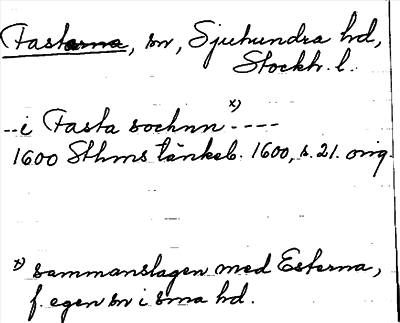 Fastarna, sn, Sjuhundra hd,
Stockh. l.
--i Fasta sochnn x) ----
1600 Sthms tänkeb. 1600, s. 21. orig.
x) sammanslagen med Esterna,
f. egen sn i sma hd.